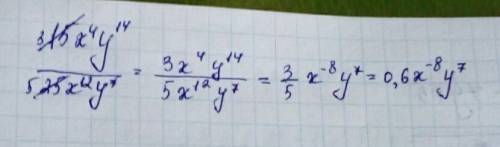 3 15x⁴y¹⁴ / 5 25x¹²y⁷ = 3x⁴y¹⁴ / 5x¹²y⁷ = 3/5 x⁻⁸y⁷ = 0,6x⁻⁸y⁷